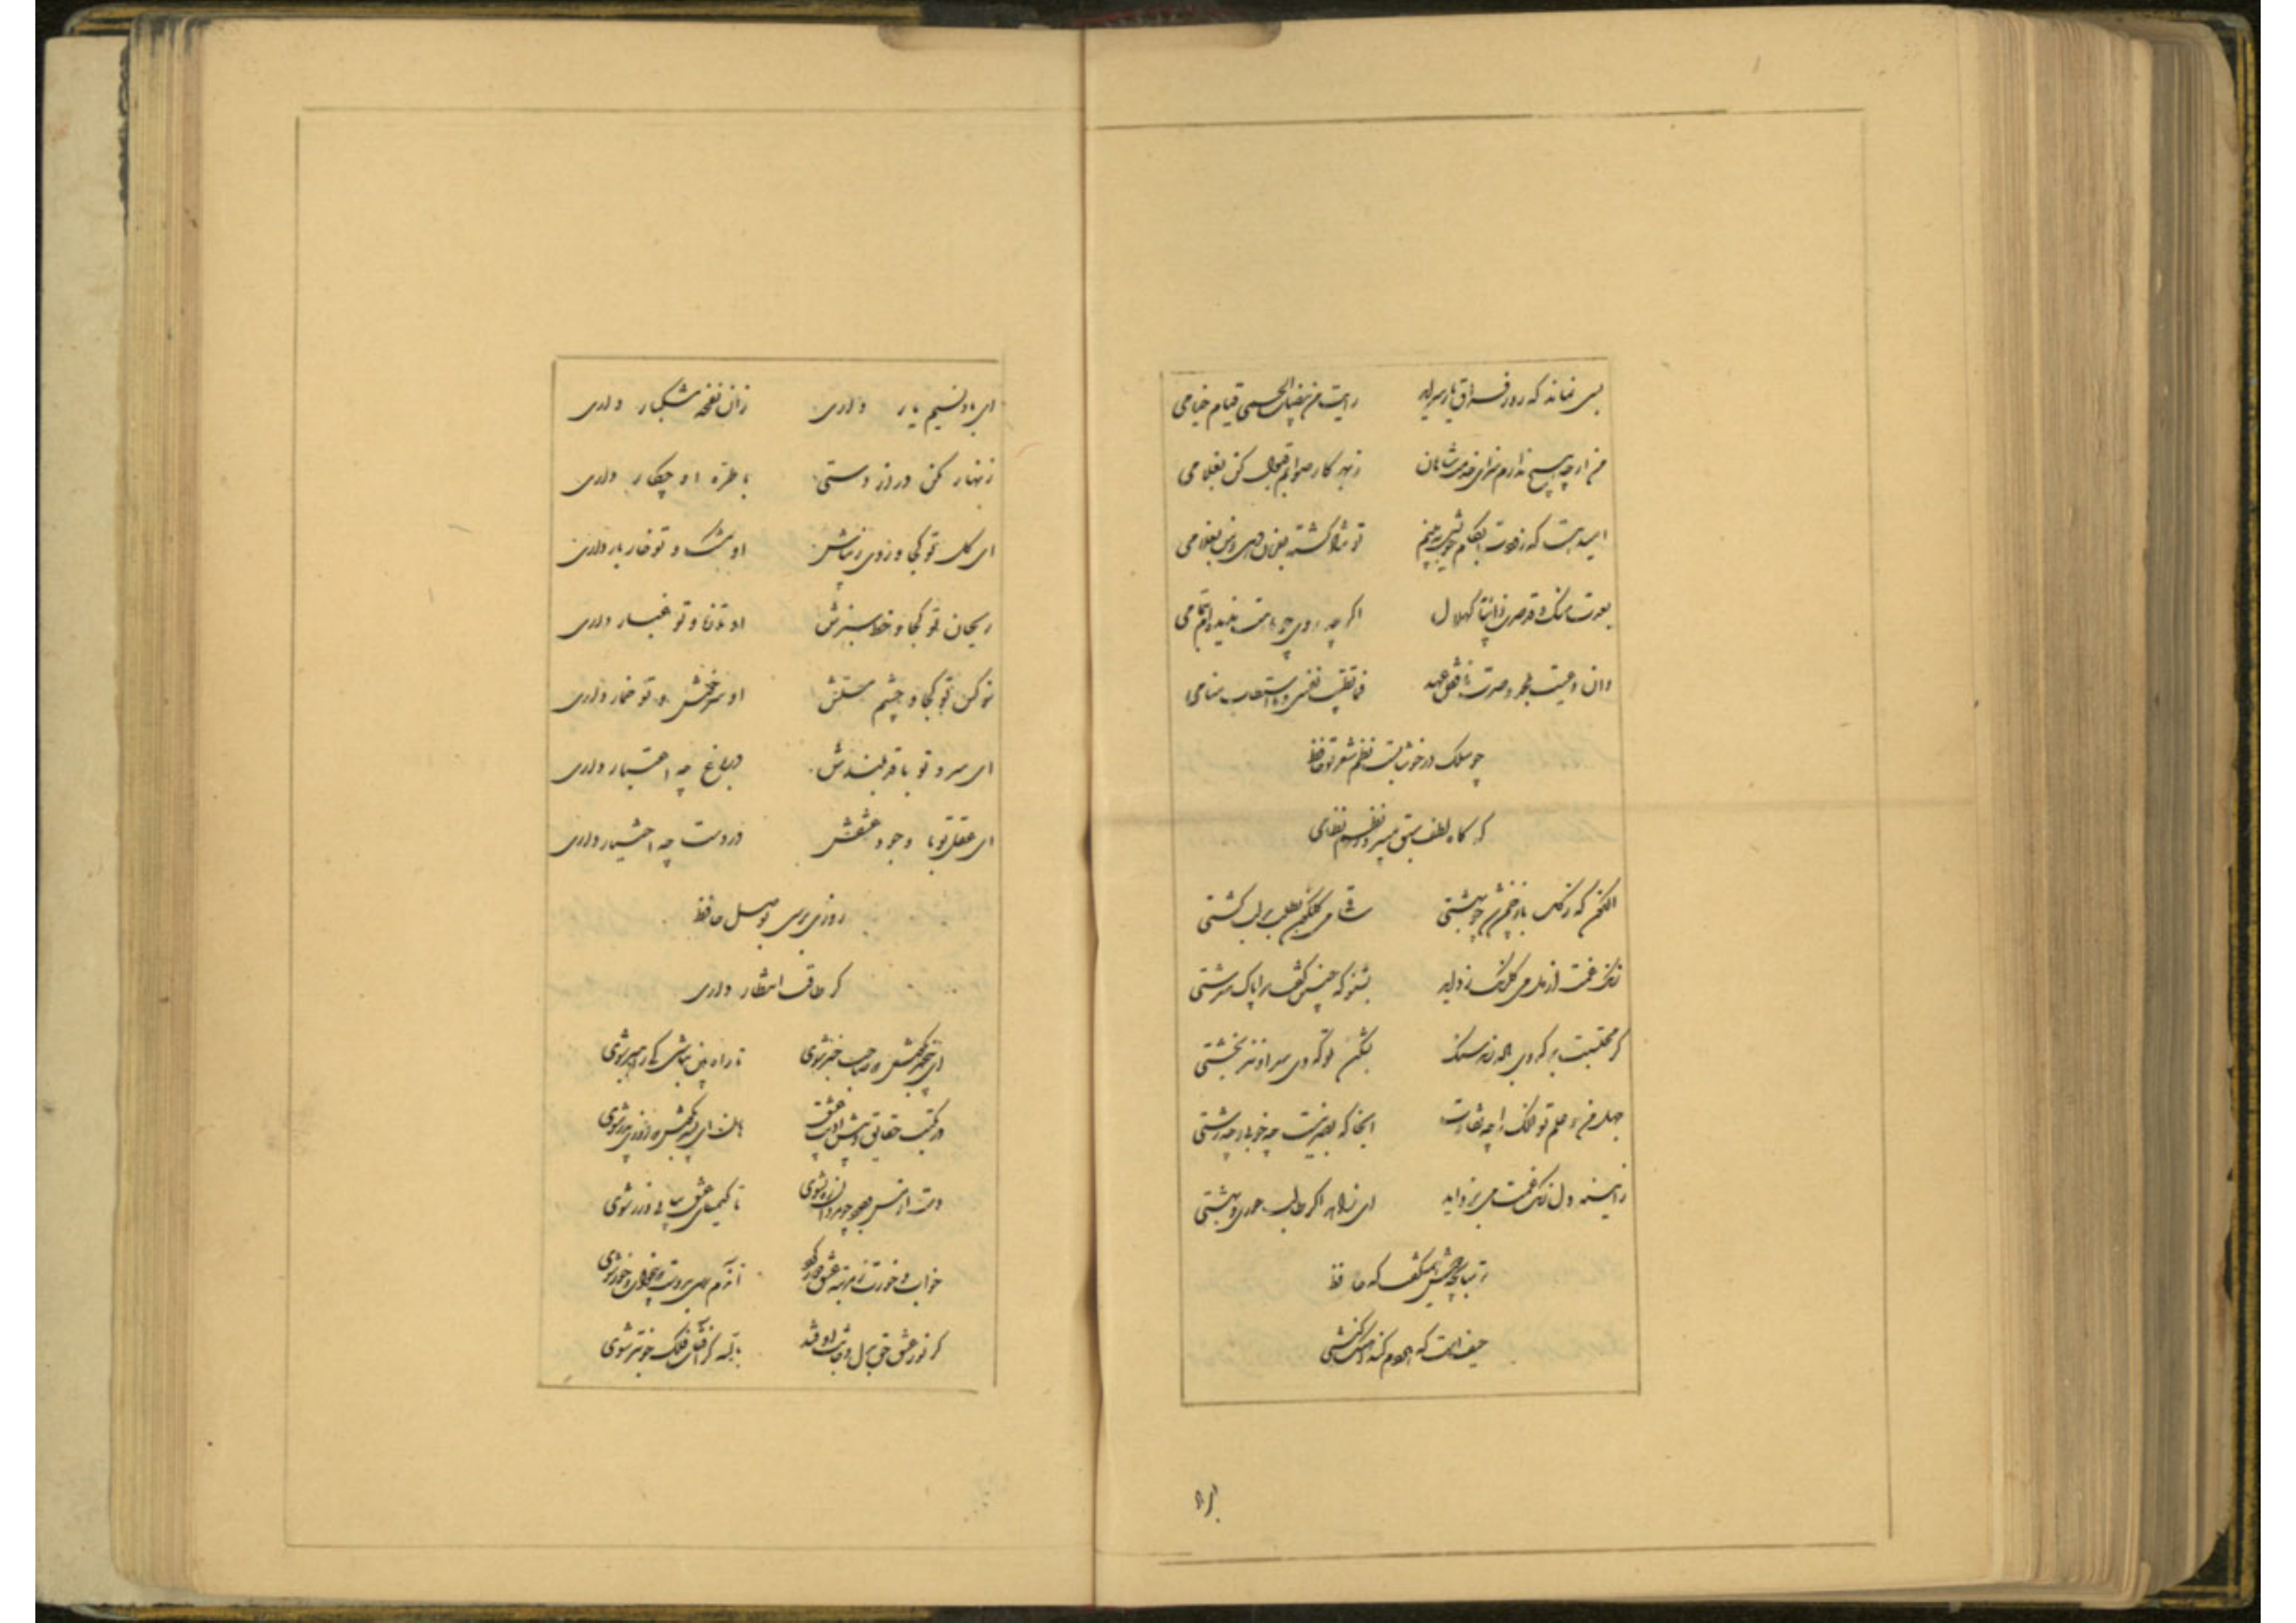 بسی نماند که روز فراق یار سراید رایت من هضبات الحمی قیام خیامی
من ارچه هیچ ندارم سزای خدمت شاهان ز بهر کار صوابم قبول کن بغلامی
امید هست که زودت بکام خویش ببینم تو شاد گشته بفرمان دهی و من بغلامی
بعدت منک و قد صرت ذائبا کهلال اگرچه روی چو ماهت ندیده‌ام بتمامی
وان دعیت بخلد و صرت ناقض عهد فما تطیب نفسی و ما استطاب منامی
چو سلک در خوشابست نظم شعر تو حافظ
که گاه لطف سبق میبرد ز نظم نظامی
اکنون که ز گل باز چمن شد چو بهشتی ساقی می گلگون بطلب بر لب کشتی
زنگ غمت از دل می گلرنگ زداید بشنو که چنین گفت مرا پاک سرشتی
گر محتسبت بر کدوی باده زند سنگ بشکن تو کدوی سر او نیز بخشتی
جهل من و علم تو فلک را چه تفاوت انجا که بصر نیست چه خوبی و چه زشتی
ز آیینه دل زنگ غمت می بزداید ای زاهد اگر طالب حوری و بهشتی
ترسابچه دوش همی گفت که حافظ
حیف است که هر دم کند آهنگ کنشتی
ای باد نسیم یار داری زان نفخه مشکبار داری
زنهار مکن دراز دستی با طره او چکار داری
ای گل تو کجا و روی زیباش او مشک و تو خار بار داری
ریحان تو کجا و خط سبزش او تازه و تو غبار داری
نرگس تو کجا و چشم مستش او سرخوش و تو خمار داری
ای سرو تو با قد بلندش در باغ چه اعتبار داری
ای عقل تو با وجود عشقش در دست چه اختیار داری
روزی برسی بوصل حافظ
گر طاقت انتظار داری
ای بیخبر بکوش که صاحب خبر شوی تا راه بین نباشی کی راهبر شوی
در مکتب حقایق و پیش ادیب عشق هان ای پسر بکوش که روزی پدر شوی
دست از مس وجود چو مردان ره بشوی تا کیمیای عشق بیابی و زر شوی
خواب و خورت ز مرتبه عشق دور کرد آندم رسی بدوست که بیخواب و خور شوی
گر نور عشق حق بدل و جانت اوفتد بالله کز آفتاب فلک خوبتر شوی